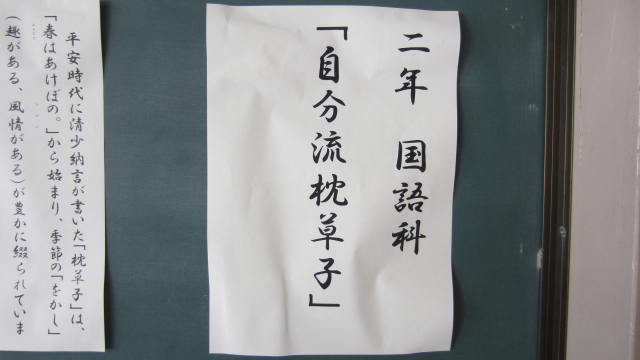 二年　国語科
「自分流枕草子」
平安時代に清少納言が書いた「枕草子」は、
「春はあけぼの。」から始まり、季節の「をかし」
(趣がある、風情がある)が豊かに綴られていま